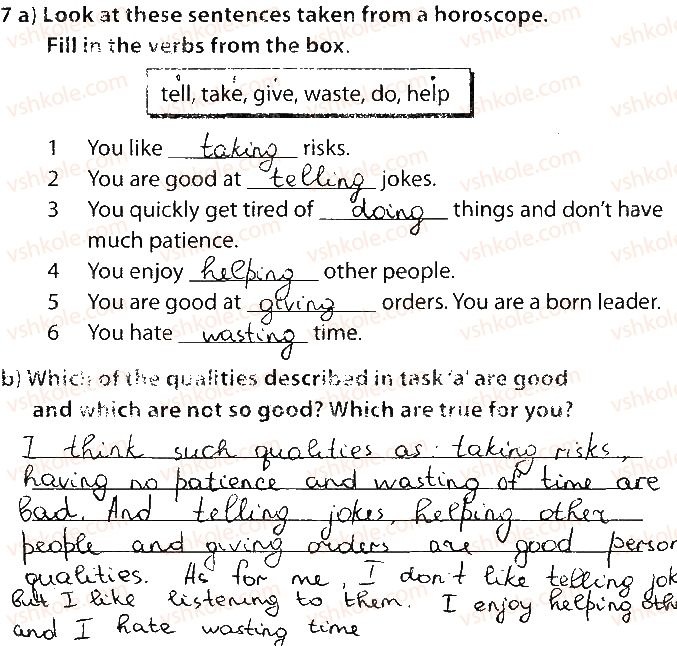 7 a) Look at these sentences taken from a horoscope.
Fill in the verbs from the box.
tell, take, give, waste, do, help
1 You like taking risks.
2 You are good at telling jokes.
3 You quickly get tired of doing things and don't have
much patience.
4 You enjoy helping other people.
5 You are good at giving orders. You are a born leader.
6 You hate wasting time.
b) Which of the qualities described in task 'a' are good
and which are not so good? Which are true for you?
I think such qualities as taking risks,
having no patience and wasting of time are
bad. And telling jokes helping other
people and giving orders are good person
qualities. As for me, I don't like telling jok
but I like listening to them. I enjoy helping othe
and I hate wasting time
vshkole.com